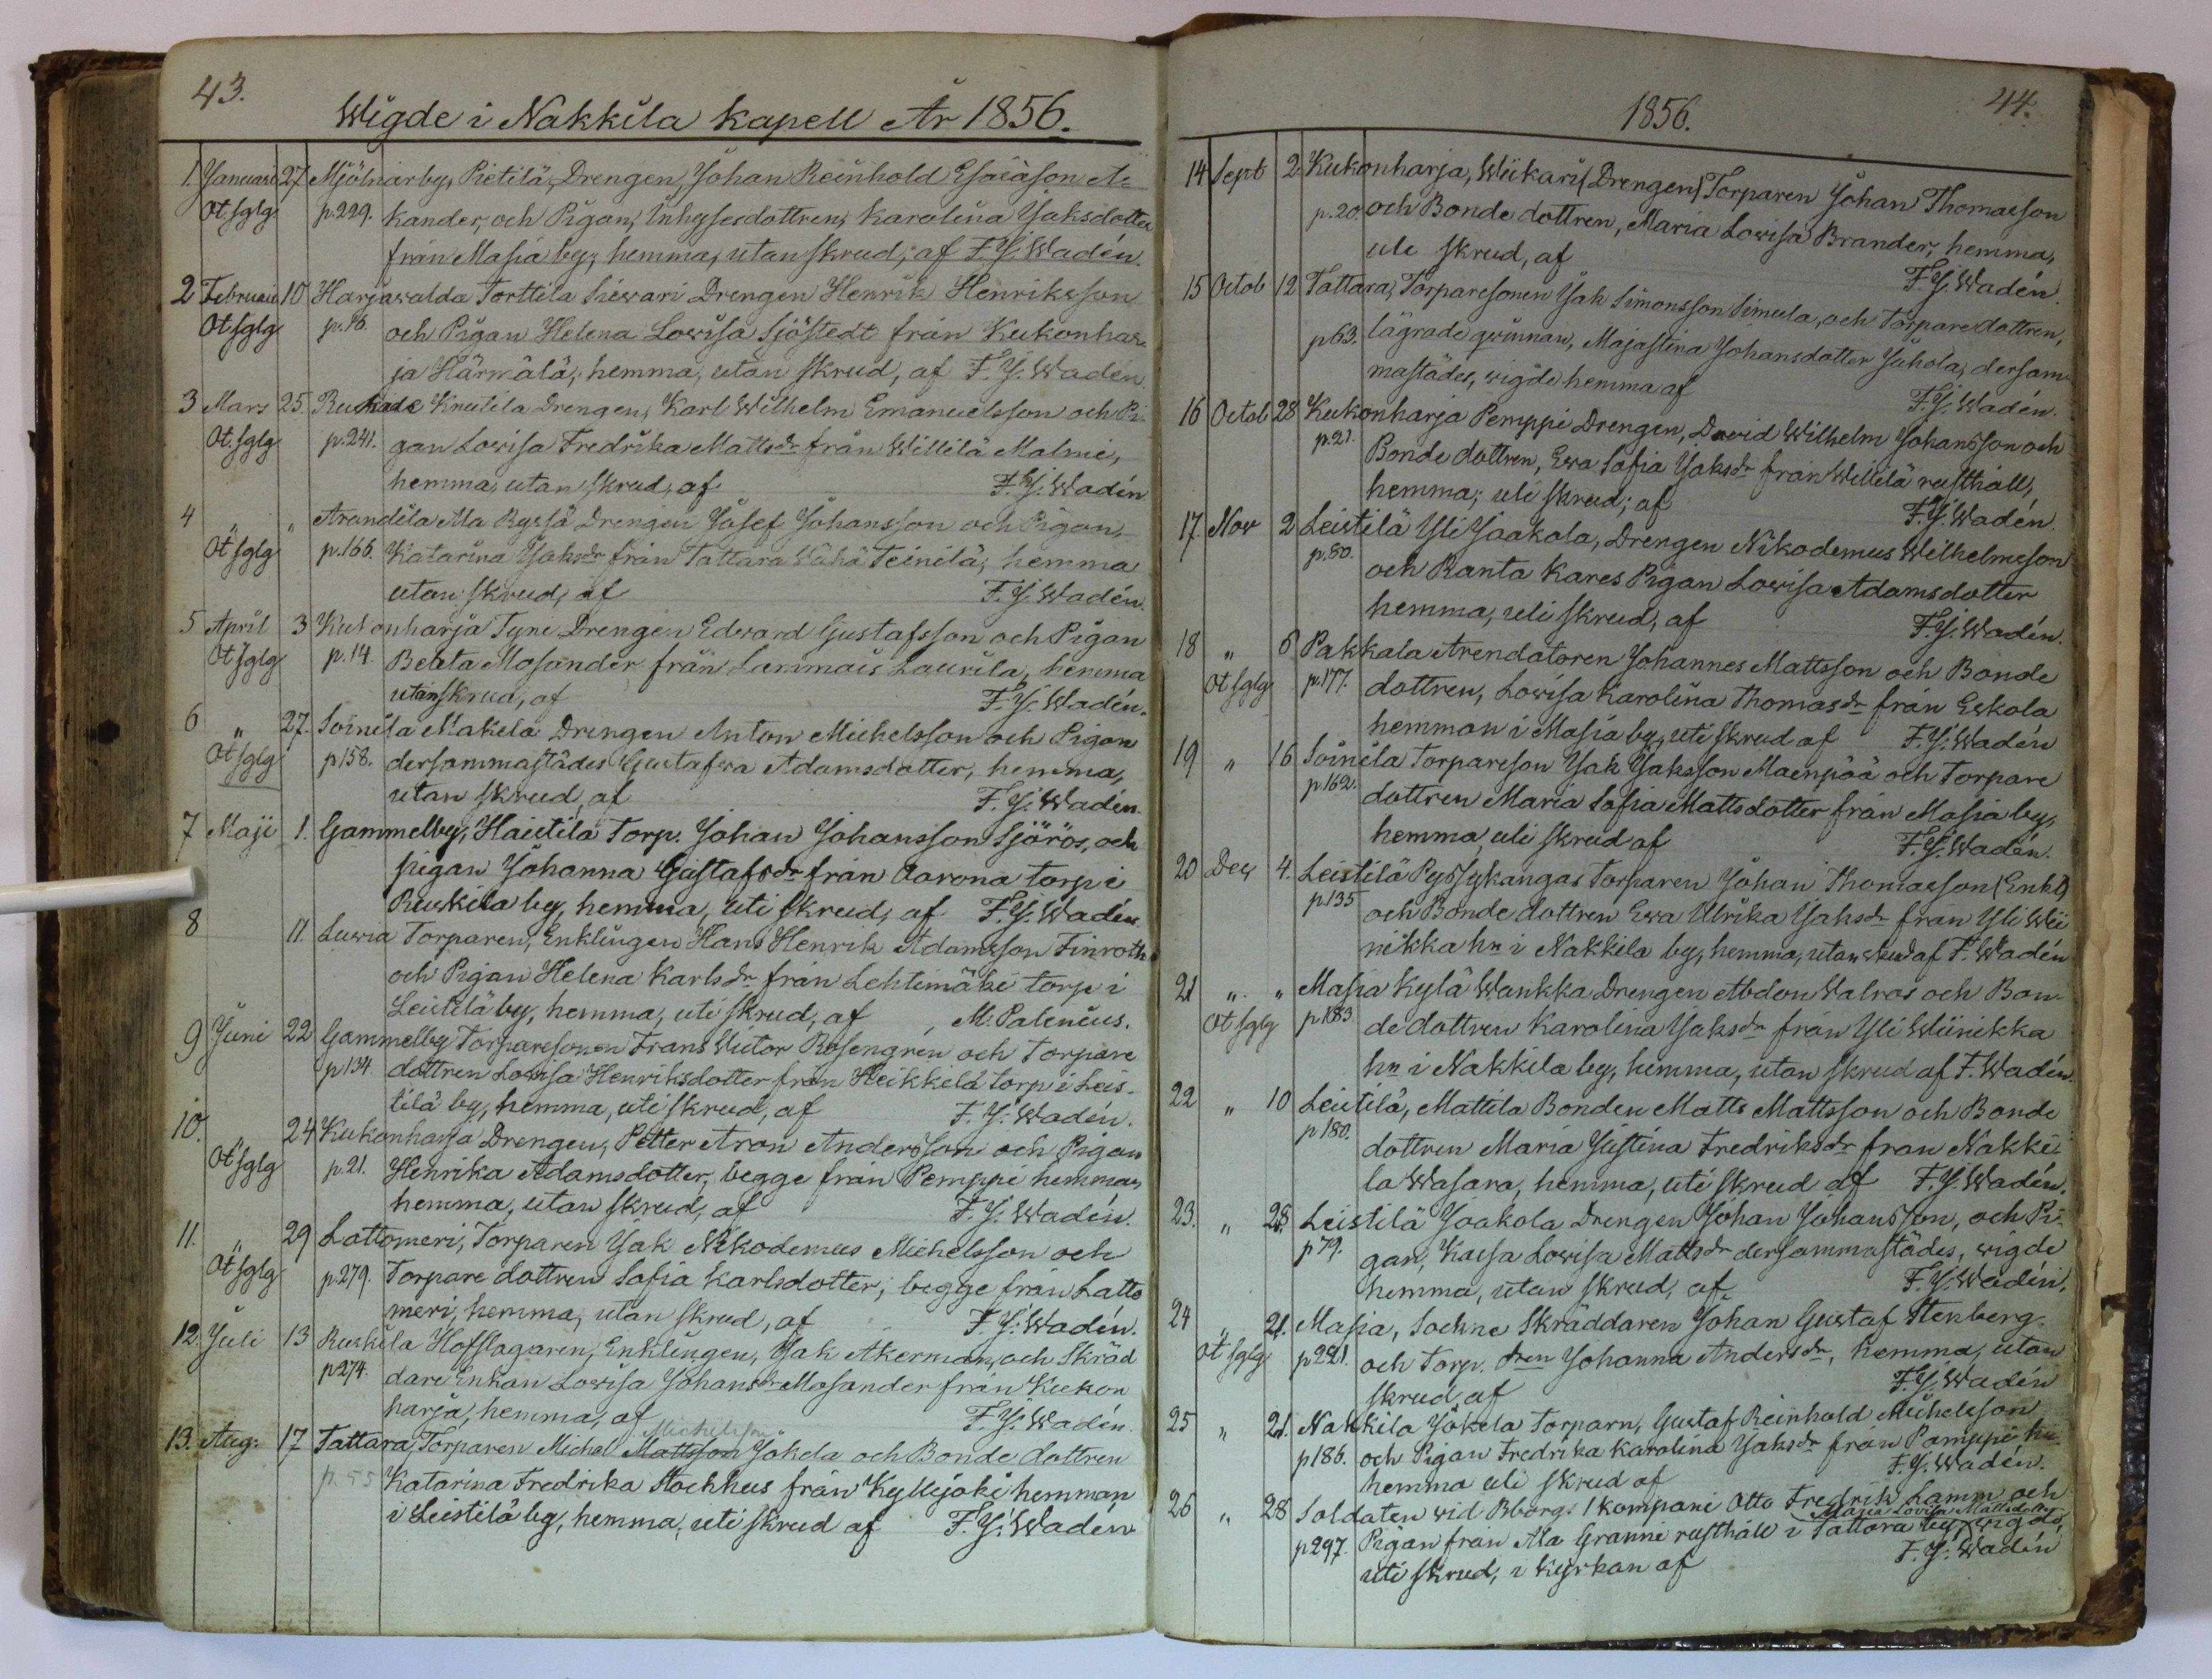 43.
Wigde i Nakkila kapell År 1856.
1. Januari 27 Mjölnarby, Pietilä, Drengen, Johan Reinhold Esaiason A-
Ot. sglg p.229. kander, och Pigan, Inhysesdottren, Karolina Jaksdotter
från Masia by, hemma, utan skrud, af F. J. Wadén.
2 Februarii 10 Harjawalda Torttila Siewari Drengen Henrik Henriksson
Ot sglg p.16. och Pigan Helena Lowisa Sjöstedt från Kukonhar-
ja Härmälä, hemma, utan skrud, af F. J. Wadén
3 Mars 25. Ruskila Knutila Drengen, Karl Wilhelm Emanuelsson och Pi-
Ot. sglg p.241. gan Lowisa Fredrika Mattsdr från Willilä Malmi,
hemma, utan skrud, af F. J. Wadén
4 " " Arandila Ala Ryssä Drengen Josef Johansson och Pigan,
Ot sglg p.166. Katarina Jaksdr från Tattara Wähä Teinilä, hemma
utan skrud, af F. J. Wadén.
5 April 3 Kukonharja Tyni Drengen Edward Gustafsson och Pigan
Ot sglg p.14. Beata Mosander från Lammais Laurila, hemma
utan skrud, af F. J. Wadén.
6 " 27. Soinila Makela Drengen Anton Michelsson och Pigan
Ot sglg p158. dersammastädes Gustafwa Adamsdotter, hemma,
utan skrud, af F. J. Wadén.
7 Maji 1. Gammelby, Haistila Torp. Johan Johansson Sjöros, och
pigan Johanna Gustafsdr från Aarona torp i
Ruskila by, hemma, uti skrud, af F. J. Wadén
8 11. Luwia Torparen, Enklingen Hans Henrik Adamsson Finroth
och Pigan Helena Karlsdr från Lehtimäki torp i
Leistilä by, hemma, uti skrud, af M. Palenius.
9 Juni 22 Gammelby Torparesonen Frans Victor Rosengren och Torpare
p134. dottren Lowisa Henriksdotter från Heikkilä torp i Leis-
tilä by, hemma, uti skrud, af F. J. Wadén.
10. " 24 Kukonharja Drengen, Petter Aron Andersson och Pigan
Ot sglg p.21. Henrika Adamsdotter, begge från Pemppi hemman
hemma, utan skrud, af F. J. Wadén.
11. " 29 Lattomeri, Torparen Jak Nikodemus Michelsson och
Ot sglg p.279. Torpare dottren Sofia Karlsdotter; begge från Latto
meri, hemma, utan skrud, af F. J. Wadén.
12. Juli 13 Ruskila Hofslagaren, Enklingen, Jak Akerman, och Skräd
p274. dare Enkan Lowisa Johansdr Mosander från Kukon
harja, hemma, af F. J. Wadén.
Michelsson
13. Aug: 17 Tattara, Torparen Michel Mattsson Jokela och Bonde dottren
p.55 Katarina Fredrika Stockhus från Kyllijoki hemman
i Leistilä by, hemma, uti skrud af F. J. Wadén
1856. 44.
14 Sept 2. Kukonharja, Wiikari (Drengen) Torparen Johan Thomasson
p.20. och Bonde dottren, Maria Lowisa Brander, hemma,
uti skrud, af F. J. Wadén.
15 Octob 12 Tattara, Torparesonen Jak Simonsson Simula, och Torpare dottren,
p63. lägrade qwinnan, Majastina Johansdotter Juhola, dersam-
mastädes, wigde hemma af F. J. Wadén.
16 Octob 28 Kukonharja Pemppi Drengen, David Wilhelm Johansson och
p.21. Bonde dottren, Ewa Sofia Jaksdr från Willilä rusthåll,
hemma; uti skrud; af F. J. Wadén.
17. Nov 2 Leistilä Yli Jaakola, Drengen Nikodemus Wilhelmsson
p.80. och Ranta Kares Pigan Lowisa Adamsdotter
hemma, uti skrud, af F. J. Wadén.
18 " 6 Pakkala Arendatoren Johannes Mattsson och Bonde
Ot sglg p.177. dottren, Lowisa Karolina Thomasdr från Eskola
hemman i Masia by, uti skrud af F. J. Wadén
19 " 16 Soinila Torpareson Jak Jaksson Maenpää och Torpare
p162. dottren Maria Sofia Mattsdotter från Masia by,
hemma, uti skrud af F. J. Wadén.
20 Dec 4. Leistilä Pyssykangas Torparen Johan Thomasson (Enkl)
p135 och Bonde dottren Ewa Ulrika Jaksdr från Yli Wii
nikka hn i Nakkila by, hemma, utan skrud af F. Wadén
21 " " Masia Kylä Wankka Drengen Abdon Walros och Bon-
Ot sglg p183 de dottren Karolina Jaksdr från Yli Wiinikka
hn i Nakkila by, hemma, utan skrud af F. Wadén.
22 " 10 Leistilä, Mattila Bonden Matts Mattsson och Bonde
p180. dottren Maria Justina Fredriksdr från Nakki-
la Wasara, hemma, uti skrud af F. J. Wadén.
23. " 25 Leistilä Jaakola Drengen Johan Johansson, och Pi-
p79. gan, Kaisa Lowisa Mattsdr dersammastädes, wigde
hemma, utan skrud, af F. J. Wadén.
24 " 21. Masia, Sockne Skräddaren Johan Gustaf Stenberg
Ot sglg p221. och Torp. dren Johanna Andersdr, hemma, utan
skrud, af F. J. Wadén
25 " 21. Nakkila Jokela Torparn, Gustaf Reinhold Michelsson
p186. och Pigan Fredrika Karolina Jaksdr från Pamppi hn
hemma uti skrud af F. J. Wadén.
26 " 28 Soldaten wid Bborgs 1 kompani Otto Fredrik Lamm och
Maja Lovisa Mattsdotter
p297. Pigan från Ala Granni rusthåll i Tattara by, wigde,
uti skrud, i kyrkan af F. J. Wadén